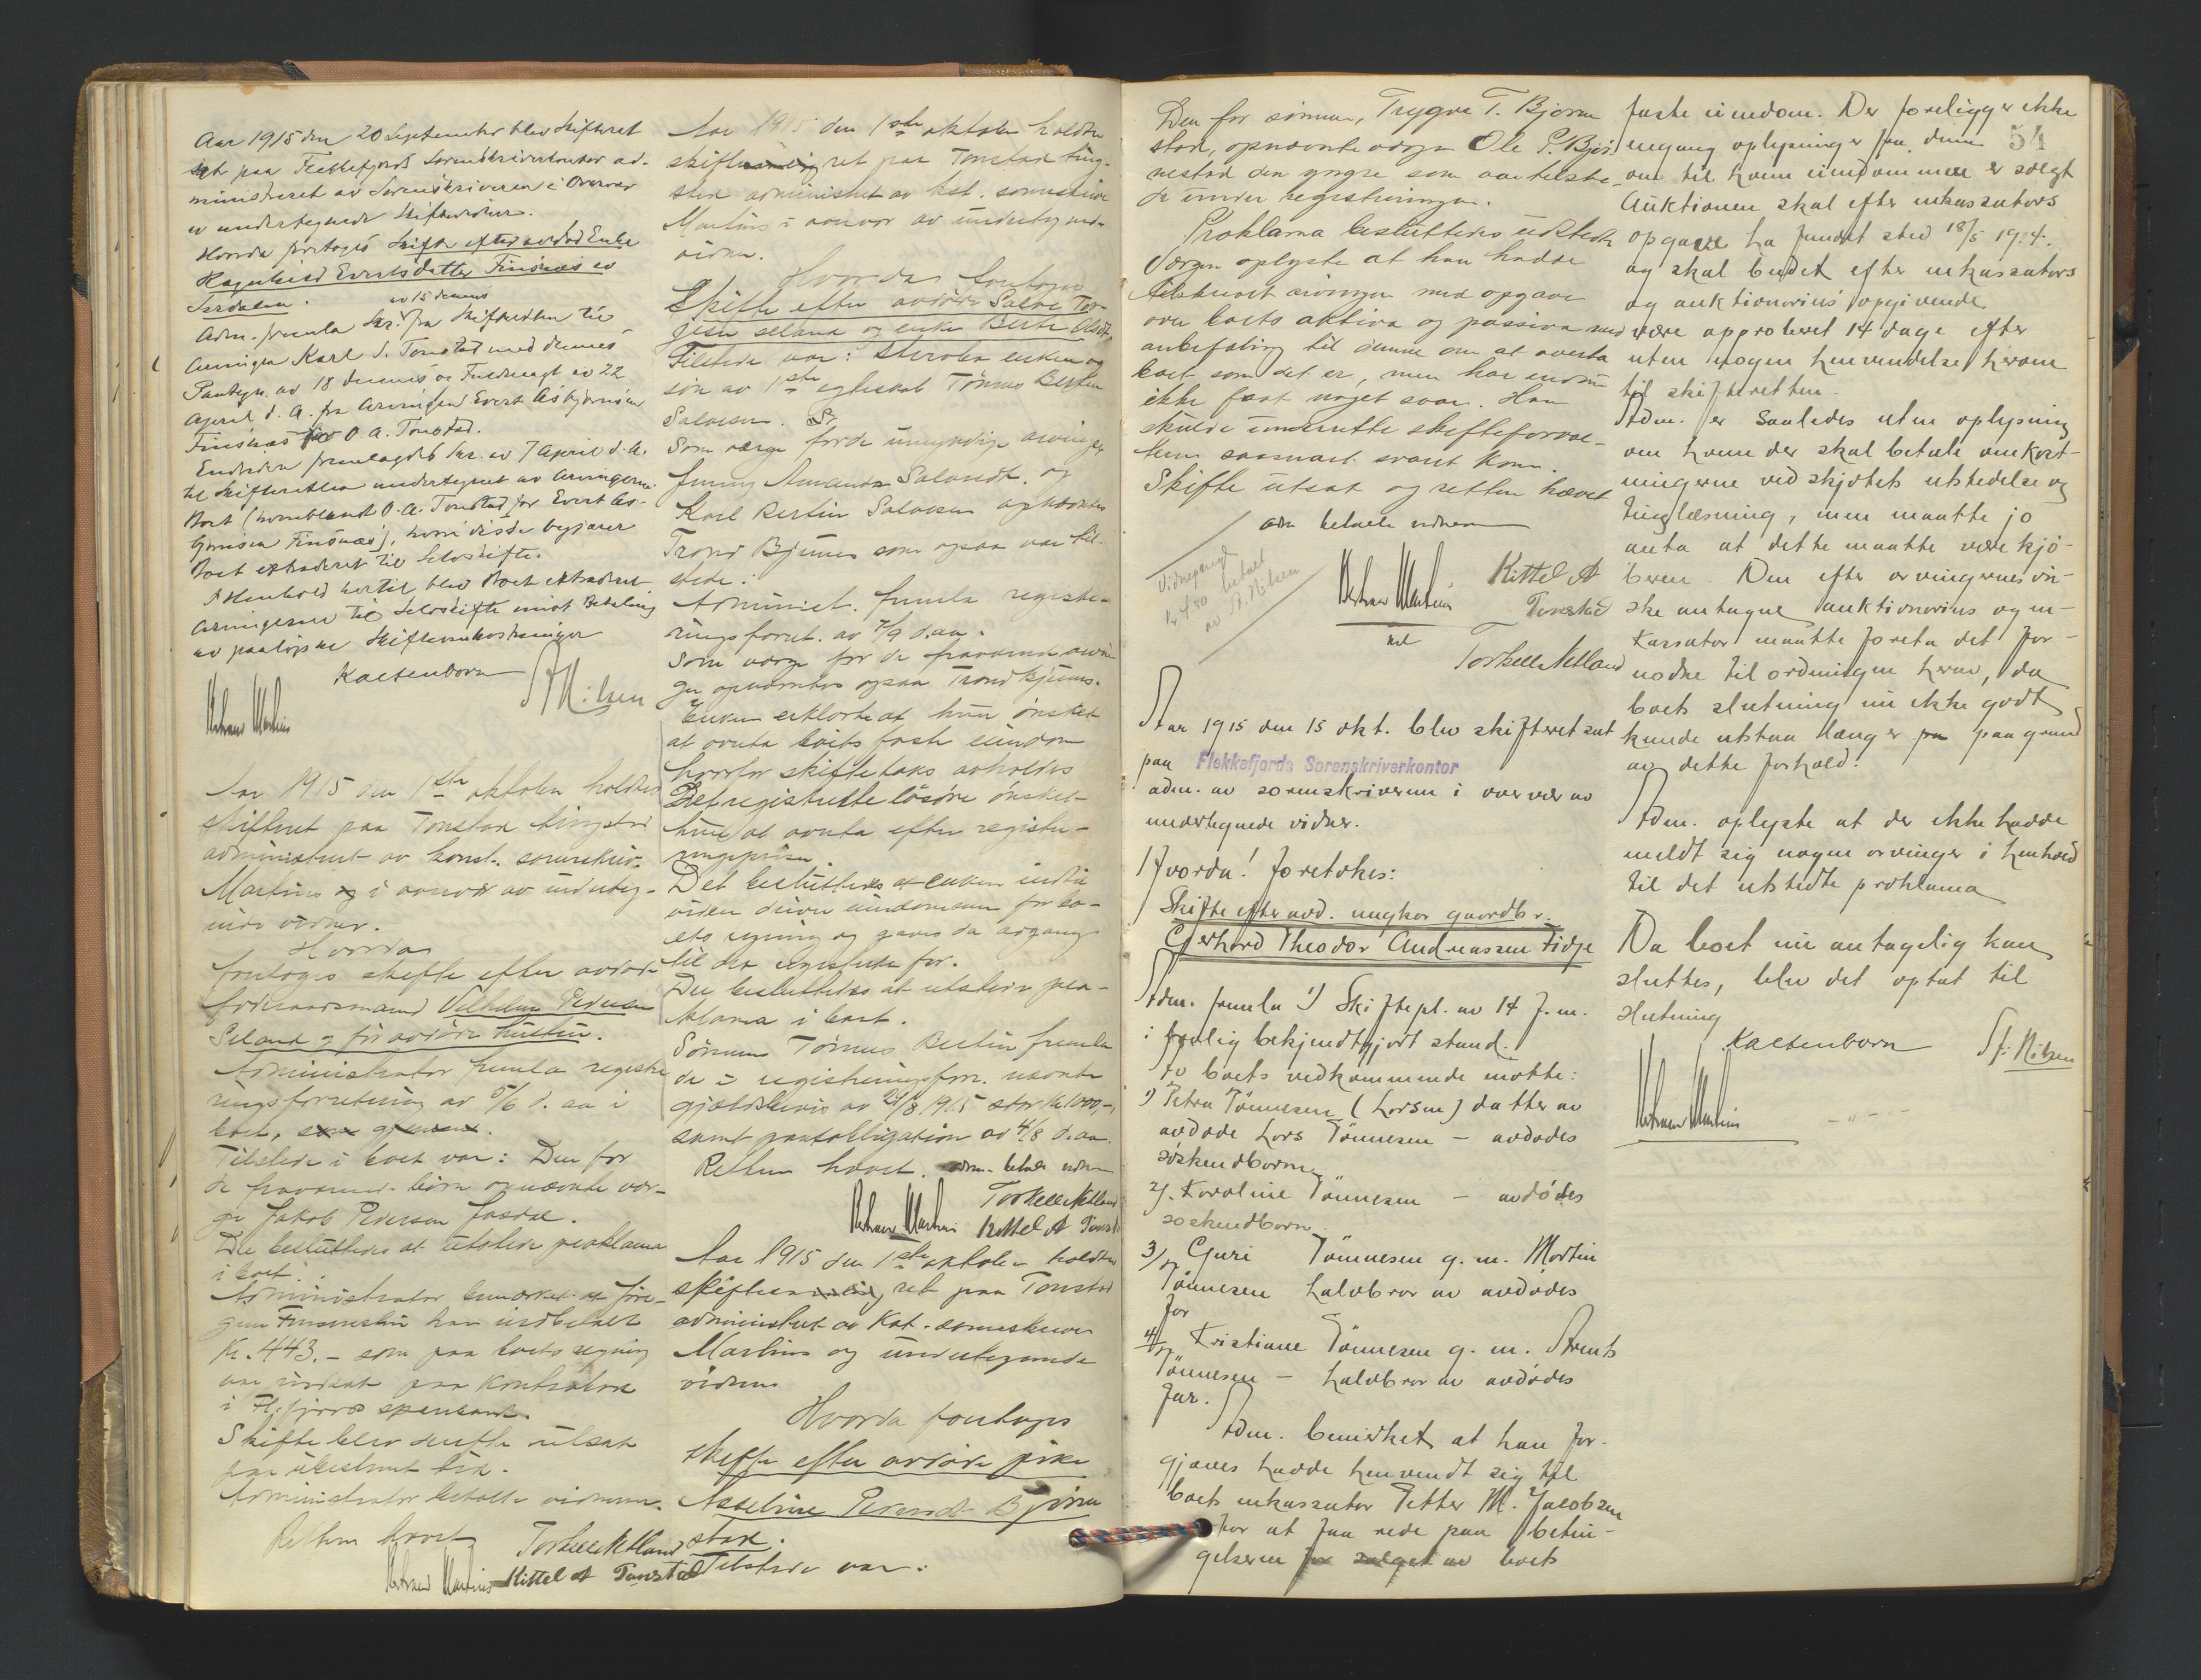 Aar 1915 den 20 September blev Skifteret
sat paa Flekkefjords Sorenskriverkontor ad-
ministreret av Sorenskriveren i Overvær
av undertegnede Skiftevidner.
Hvorda foretoges Skifte efter avdød Enke
Ragnhild Evertsdatter Finsnes av
Sirdalen.
av 15 dennes
Adm. fremla Skr. fra Skifteretten til
Arvingen Karl S. Tonstad med dennes
Paategn. av 18 dennes og Fuldmagt av 22
April d. A. fra Arvingen Evert Asbjørnsen
Finsnes for O. A. Tonstad.
Endvidere fremlagdes Skr. av 7 April d. A.
til Skifteretten undertegnet av Arvingerne
Boet (hvoriblandt O. A. Tonstad for Evert As-
bjørnsen Finsnæs), hvori disse begjærer
Boet extraderet til Selvskifte.
I Henhold hertil blev Boet extraderet
Arvingerne til Selvskifte imot Betaling
av paaløpne Skifteomkostninger
Kaltenborn
St. Nilsen
Aar 1915 den 1ste oktober holdtes
skifteret paa Tonstad tingsted
administreret av konst. sorenskriv.
Martins og i overvær av underteg-
nede vidner.
Hvorda
foretoges skifte efter avdøde
føderaadsmand Vilhelm Pedersen
Seland og før avdøde hustru.
Administrator fremla registre-
ringsforretning av 5/6 d. aa i
boet,
Tilstede i boet var: Den for
de fraværende børn opnævnte vær-
ge Jakob Pedersen Josdal.
Det besluttedes at utstede proklama
i boet.
Administrator bemærket at
har indbetalt
Kr. 443.- som paa boets regning
var indsat paa kontrabok
i Fl.fjords sparebank.
Skifte blev derefter utsat
paa ubestemt tid.
Administrator betalte vidnerne.
Retten hævet
Torkell Netland
Kittel A Tonstad
Aar 1915 den 1ste oktober holdtes
skiftesamling ret paa Tonstad ting-
sted administreret av kst. sorenskriver
Martins i overvær av undertegnede
vidner.
Hvorda foretoges
Skifte efter avdøde Salve Tor-
jesen Seland og enke Berte Olsdtr.
Tilstede var: Sterboe enken og
søn av 1ste egteskab Tønnes Bertin
Salvesen.
Som værge for de umyndige arvinger
Jenny Amanda Salvesdt. og
Karl Bertin Salvesen opnævntes
Trond Bjunes som ogsaa var til-
stede.
Administ. fremla registre-
ringsforret. av 7/9 d.aa.
Som værge for de fraværende arvin-
ger opnævntes ogsaa Trond Bjunes.
Enken erklærte at hun ønsket
at overta boets faste eiendom
hvorfor skiftetakst avholdes
Det registrerte løsøre ønsket
hun at overta efter registre-
ringsprisen.
Det besluttedes at enken indtil
videre driver eiendommen for bo-
ets regning og gaves da adgang
til det registrerte for.
Det besluttedes at utstede pro-
klama i boet.
Sønnen Tønnes Bertin fremla
de i registreringsforr. nævnte
gjældsbevis av 24/8 1915 stor kr 1000,-,
samt pantobligation av 4/8 d.aa.
Retten hævet. adm. betalte vidnerne
Torkell Netland
Kittel A Tonstad
Aar 1915 den 1ste oktober holdtes
skiftesamling ret paa Tonstad
administreret av kst. sorenskriver
Martins og undertegnede
vidner
Hvorda foretoges
skifte efter avdøde pike
Asseline Pedersdt. Bjørne-
stad.
Tilstede var:
Den for sønnen, Trygve T. Bjørne-
stad, opnævnte værge Ole P. Bjør-
nestad den yngre som var tilste-
de under registreringen.
Proklama besluttedes utstedt
Værgen oplyste at han hadde
tilskrevet arvingen med opgave
over boets aktiva og passiva med
anbefaling til denne om at overta
boet som det er, men har endnu
ikke faat noget svar. Han
skulde underrette skifteforval-
teren saasnart svaret kom.
Skifte utsat og retten hævet
adm betalte vidnerne
Vidnepeng
kr 4/80 betalt
av St. Nilsen
Kittel A
Tonstad
Torkell Netland
Aar 1915 den 15 okt. blev skifteret sat
paa Flekkefjords Sorenskriverkontor
adm. av sorenskriveren i overvær av
undertegnede vidner.
Hvorda! foretokes:
Skifte efter avd. ungkar gaardbr.
Gerhard Theodor Andreassen Fidje
Adm. fremla 1) Skiftepl. av 14 f. m.
i lovlig bekjendtgjort stand.
Av boets vedkommende møtte:
1) Petra Tönnesen (Larsen) datter av
avdøde Lars Tönnesen - avdødes
søskendbarn
2). Karoline Tönnesen - avdødes
søskendbarn.
3), Guri Tönnesen g. m. Martin
Tönnesen halvbror av avdødes
far
4), Kristiane Tönnesen g. m. Arent
Tönnesen - halvbror av avdødes
far.
Adm. bemerket at han for-
gjæves hadde henvendt sig til
boets inkassator Petter M. Jacobsen
for at faa rede paa betin-
gelserne for salget av boets
54
faste eiendom. Der foreligger ikke
engang oplysninger fra denne
om til hvem eiendommen er solgt
Auktionen skal efter inkassators
opgave ha fundet sted 18/5 1914.
og skal budet efter inkassators
og auktionarius' opgivende
være approberet 14 dage efter
uten nogen henvendelse herom
til skifteretten.
Adm. er saaledes uten oplysning
om hvem der skal betale omkost-
ningerne ved skjøtets utstedelse og
tinglæsning, men maatte jo
anta at dette maatte være kjø-
beren. Den efter arvingernes øn-
ske antagne auktionarius og in-
kassator maatte foreta det for-
nødne til ordningen herav, da
boets slutning nu ikke godt
kunde utstaa længer paa grund
av dette forhold.
Adm. oplyste at der ikke hadde
meldt sig nogen arvinger i henhold
til det utstedte proklama
Da boet nu antagelig kan
sluttes, blev det optat til
slutning
Kaltenborn
St. Nilsen